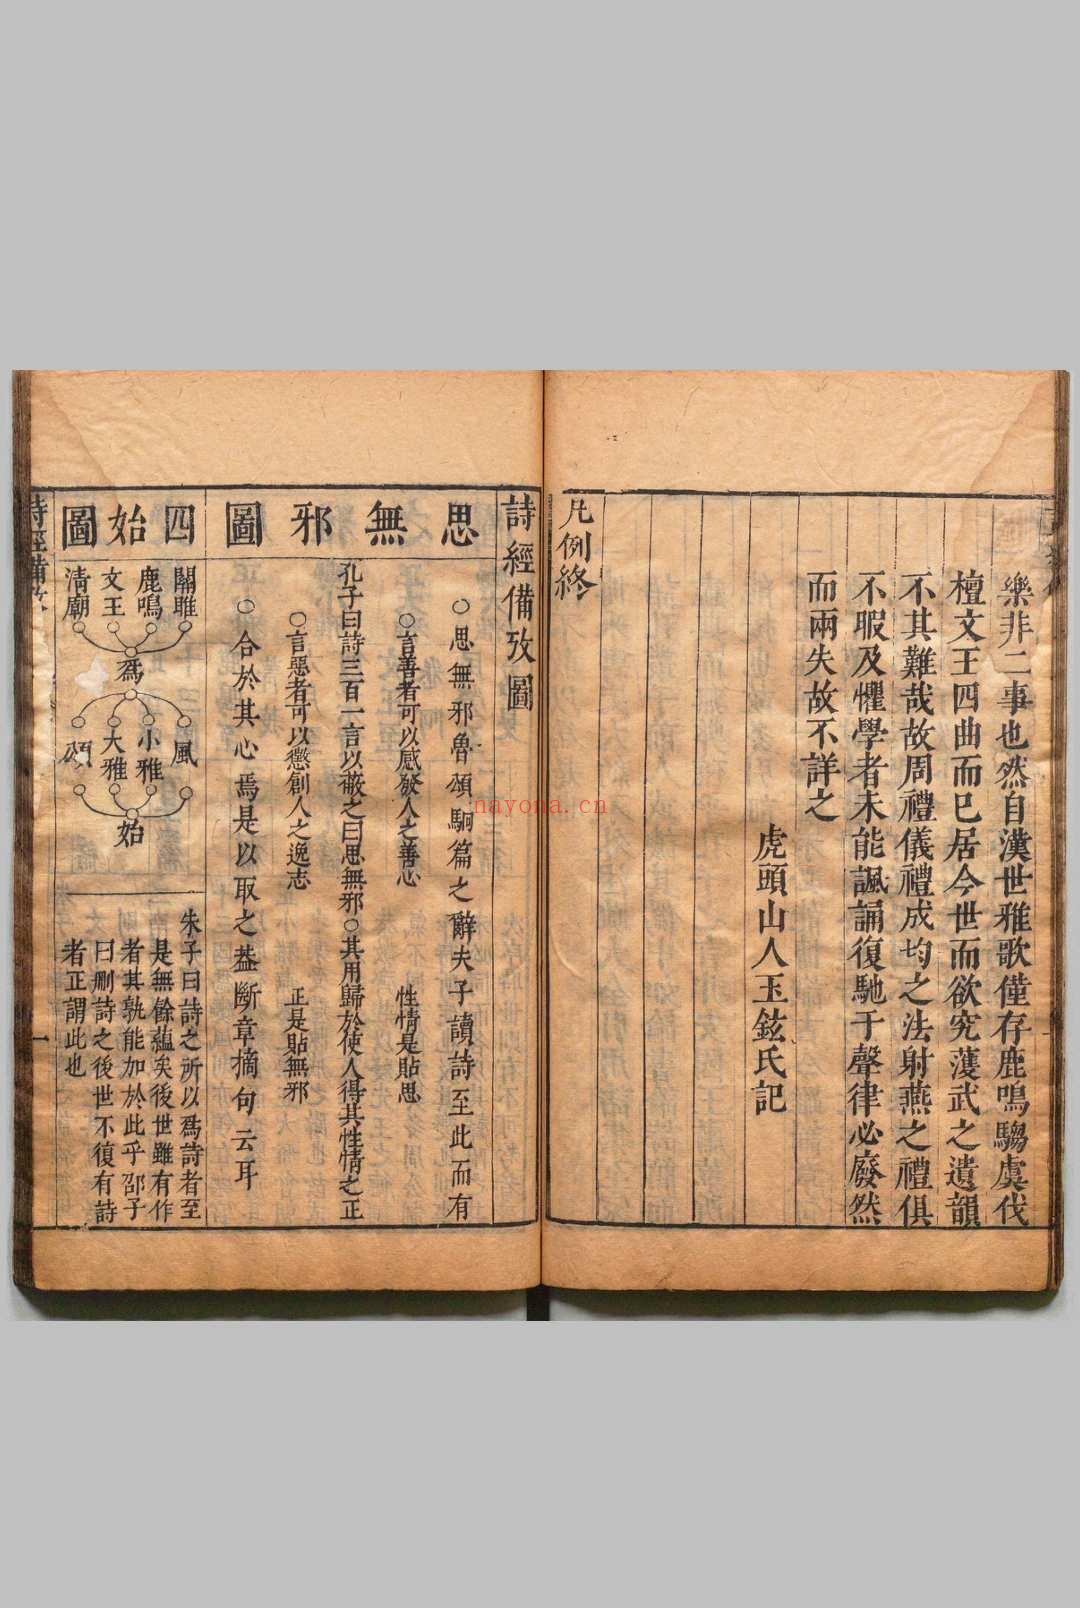 樂非二事也然自漢世雅歌僅存鹿鳴騶虞伐
檀文王四曲而已居今世而欲究濩武之遺韻
不其難哉故周禮儀禮成均之法射燕之禮俱
不暇及懼學者未能諷誦復馳于聲律必廢然
而兩失故不詳之
虎頭山人玉鉉氏記
凡例終
詩經備攷圖
思無邪圖
○思無邪魯頌駉篇之辭夫子讀詩至此而有
○言善者可以感發人之善心 性情是貼思
孔子曰詩三百一言以蔽之曰思無邪○其用歸於使人得其性情之正
○言惡者可以懲創人之逸志 正是貼無邪
○合於其心焉是以取之葢斷章摘句云耳
四始圖
關雎
鹿鳴
文王
清廟
爲
風
小雅
大雅
頌
始
朱子曰詩之所以爲詩者至
是無餘蘊矣後世雖有作
者其孰能加於此乎邵子
曰刪詩之後世不復有詩
者正謂此也
詩經備攷
一
nayona.cn